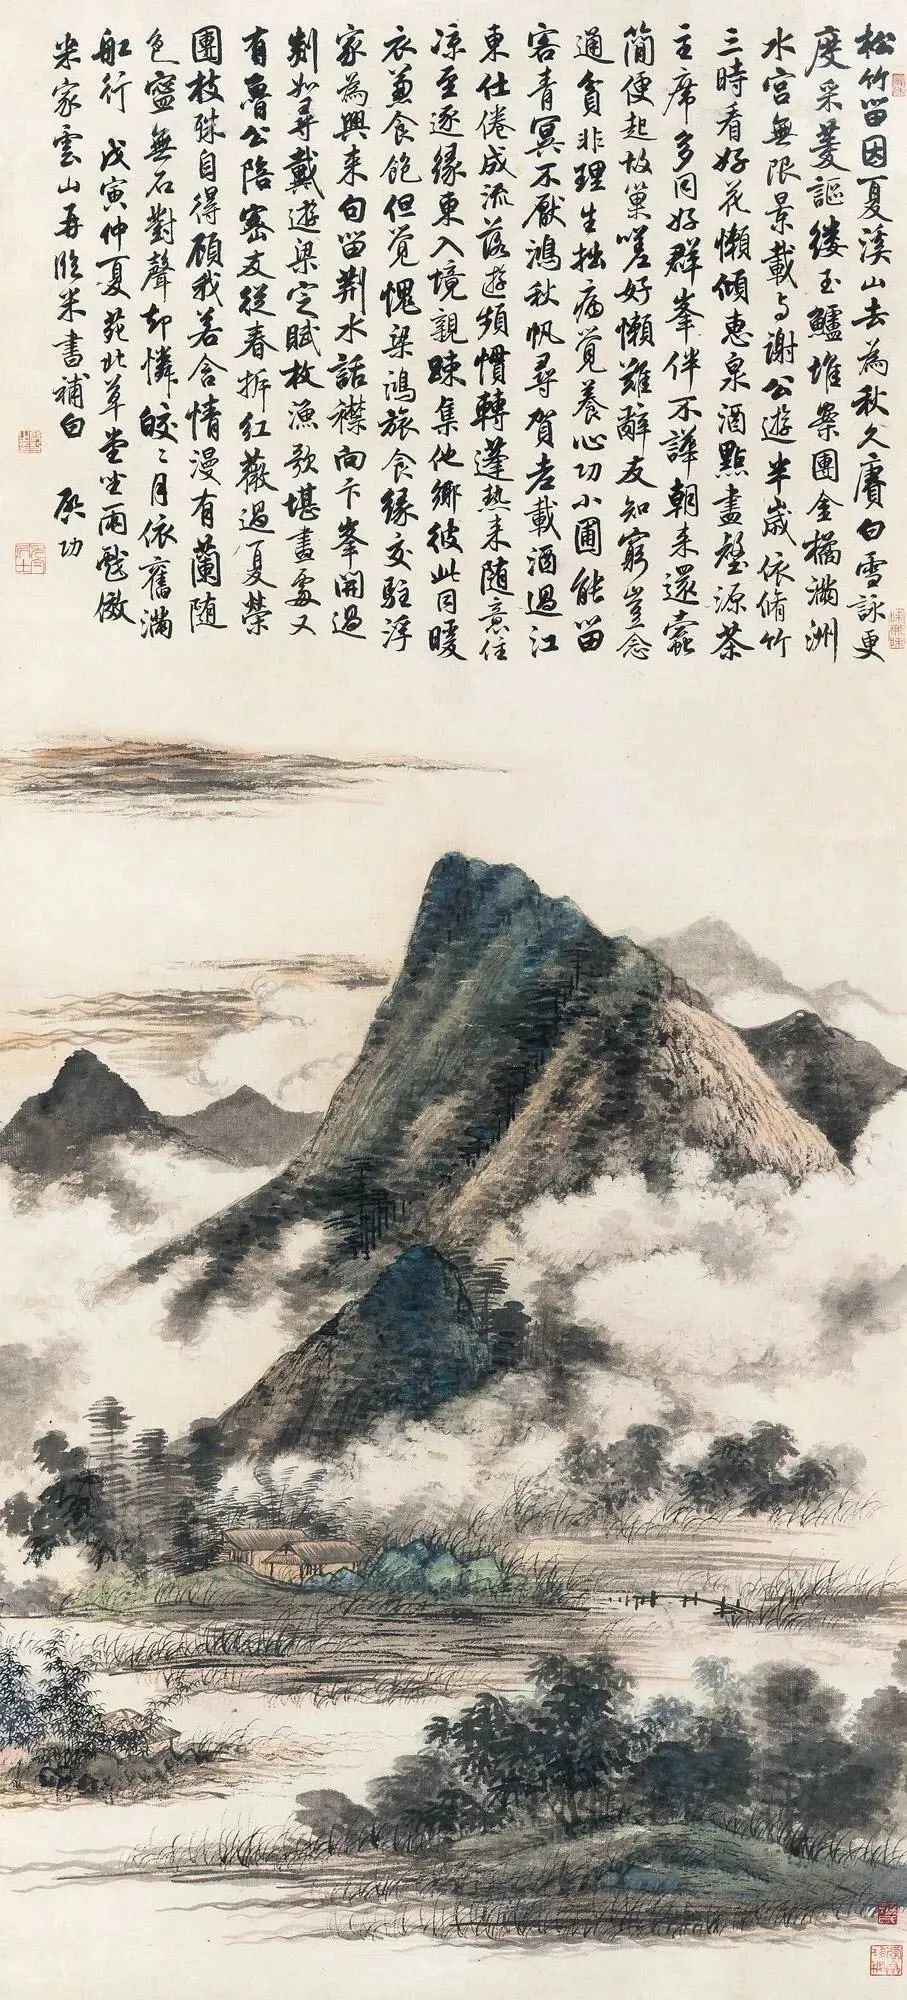 松竹留因夏溪山去為秋久賡白雪詠更
度采菱謳縷玉鱸堆案團金橘滿洲
水宮無限景載与謝公遊半歲依脩竹
三時看好花懶傾惠泉酒點盡壑源茶
主席多同好群峯伴不譁朝来還蠹
簡便起故巢嗟好懶難辭友知窮豈念
通貧非理生拙病覺養心功小圃能留
客青冥不厭鴻秋帆尋賀老載酒過江
東仕倦成流落遊頻慣轉蓬熱来随意住
凉至逐緣東入境親踈集他鄉彼此同暖
衣兼食飽但覺愧梁鴻旅食緣交駐浮
家為興来句留荆水話襟向卞峯開過
剡如尋戴遊梁定賦枚漁歌堪畫處又
有魯公陪密友從春拆紅薇過夏榮
團枝殊自得顧我若含情漫有蘭随
色寧無石對聲却憐皎〻月依舊滿
舡行 戊寅仲夏苑北草堂坐雨戲倣
米家雲山再臨米書補白 啟功